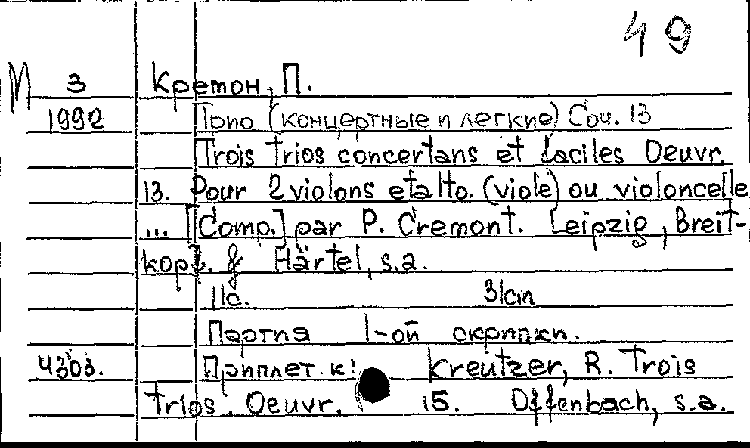 49
М 3 Кремон, П.
1992 Трио (концертные и легкие) Соч. 13
Trois trios concertans et faciles Oeuvr.
13. Pour 2 violons et alto. (viole) ou violoncelle
... [Comp.] par P. Cremont. Leipzig, Breit-
kopf. & Härtel, s.a.
11с. 31cm
Партия 1-ой скрипки.
Приплет. к: Kreutzer, R. Trois
trios. Oeuvr. 15. Offenbach, s.a.